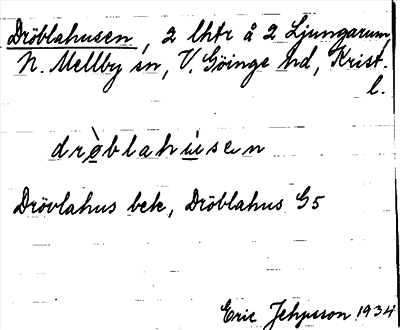 Dröblahusen, 2 lhtr å 2 Ljungarum,
N. Mellby sn, V. Göinge hd, Krist.
l.
drò̱blahùsen
Drövlahus bek, Dröblahus G5
Eric Jepsson 1934